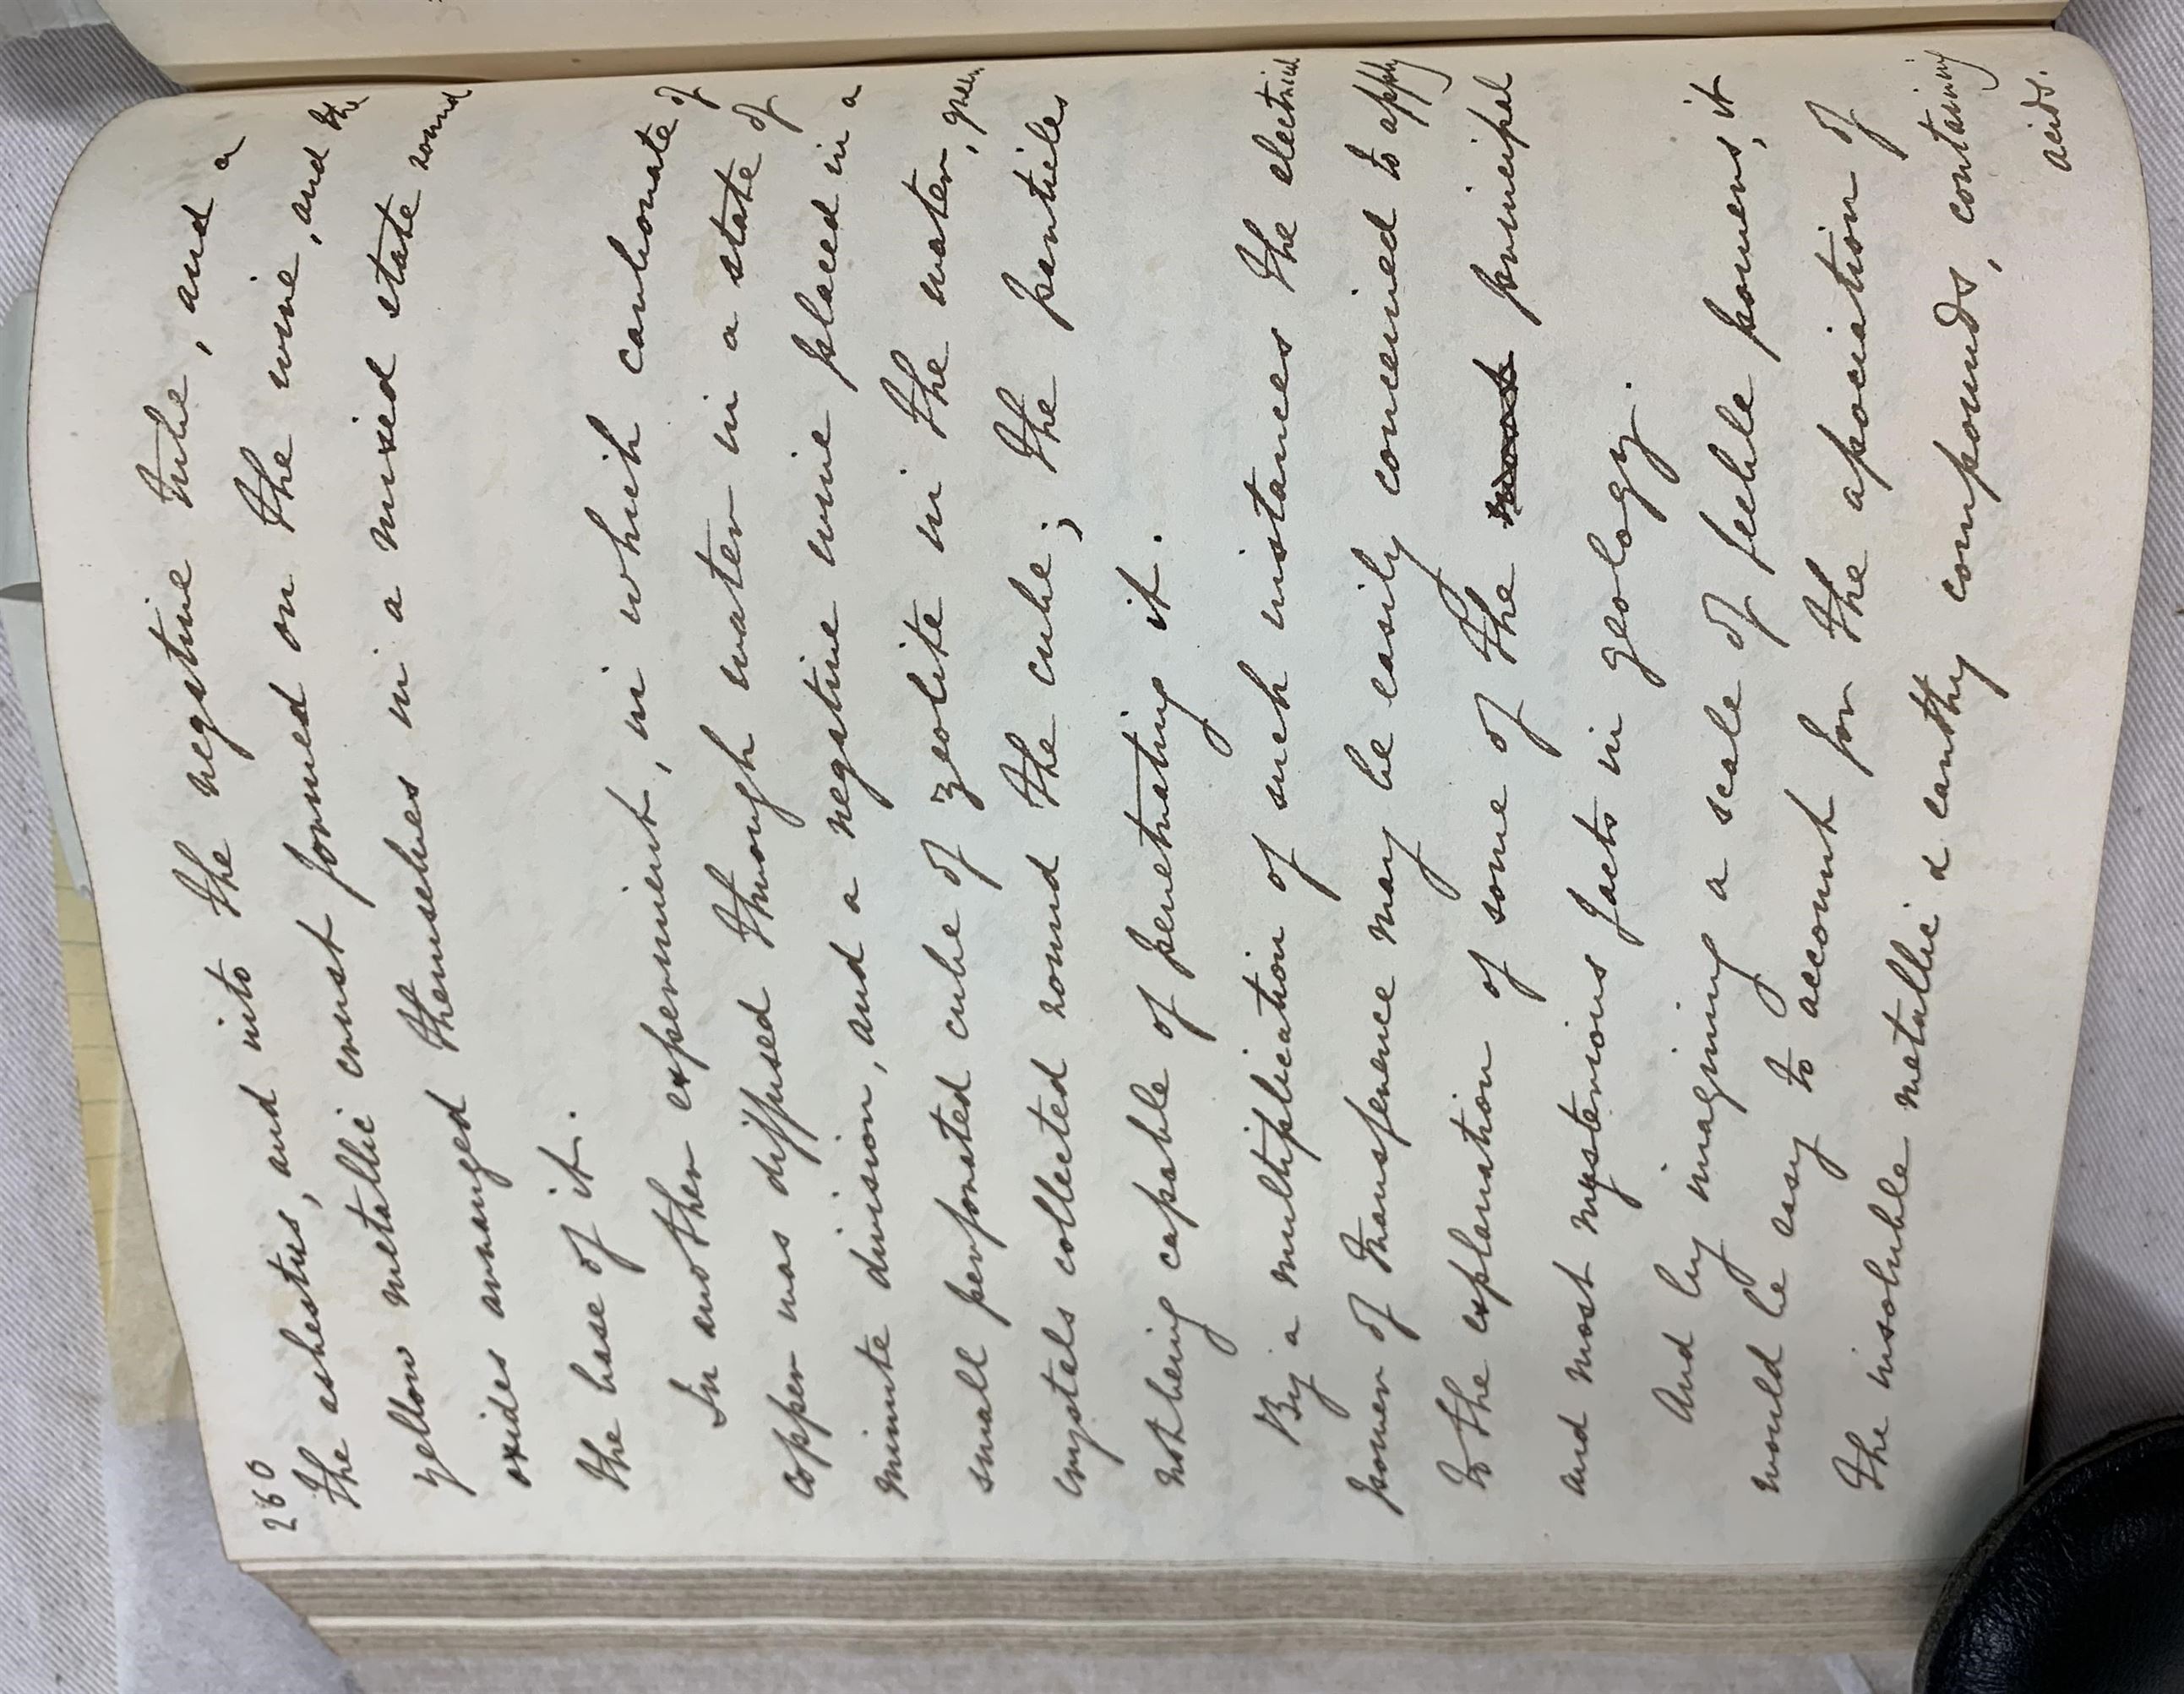 260
the asbestus, and into the negative tube, and a
yellow metallic crust formed on the wire, and the
oxides arranged themselves in a mixed state round
the base of it.
In another experiment, in which carbonate of
copper was diffused through water in a state of
minute division, and a negative wire placed in a
small perforated cube of zeolite in the water, green
crystals collected round the cube; the particles
not being capable of penetrating it.
By a multiplication of such instances the electrical
power of transference may be easily conceived to apply
to the explanation of some of the most principal
and most mysterious facts in geology.
And by imagining a scale of feeble powers, it
would be easy to account for the association of
the insoluble metallic & earthy compounds, containing
acids.